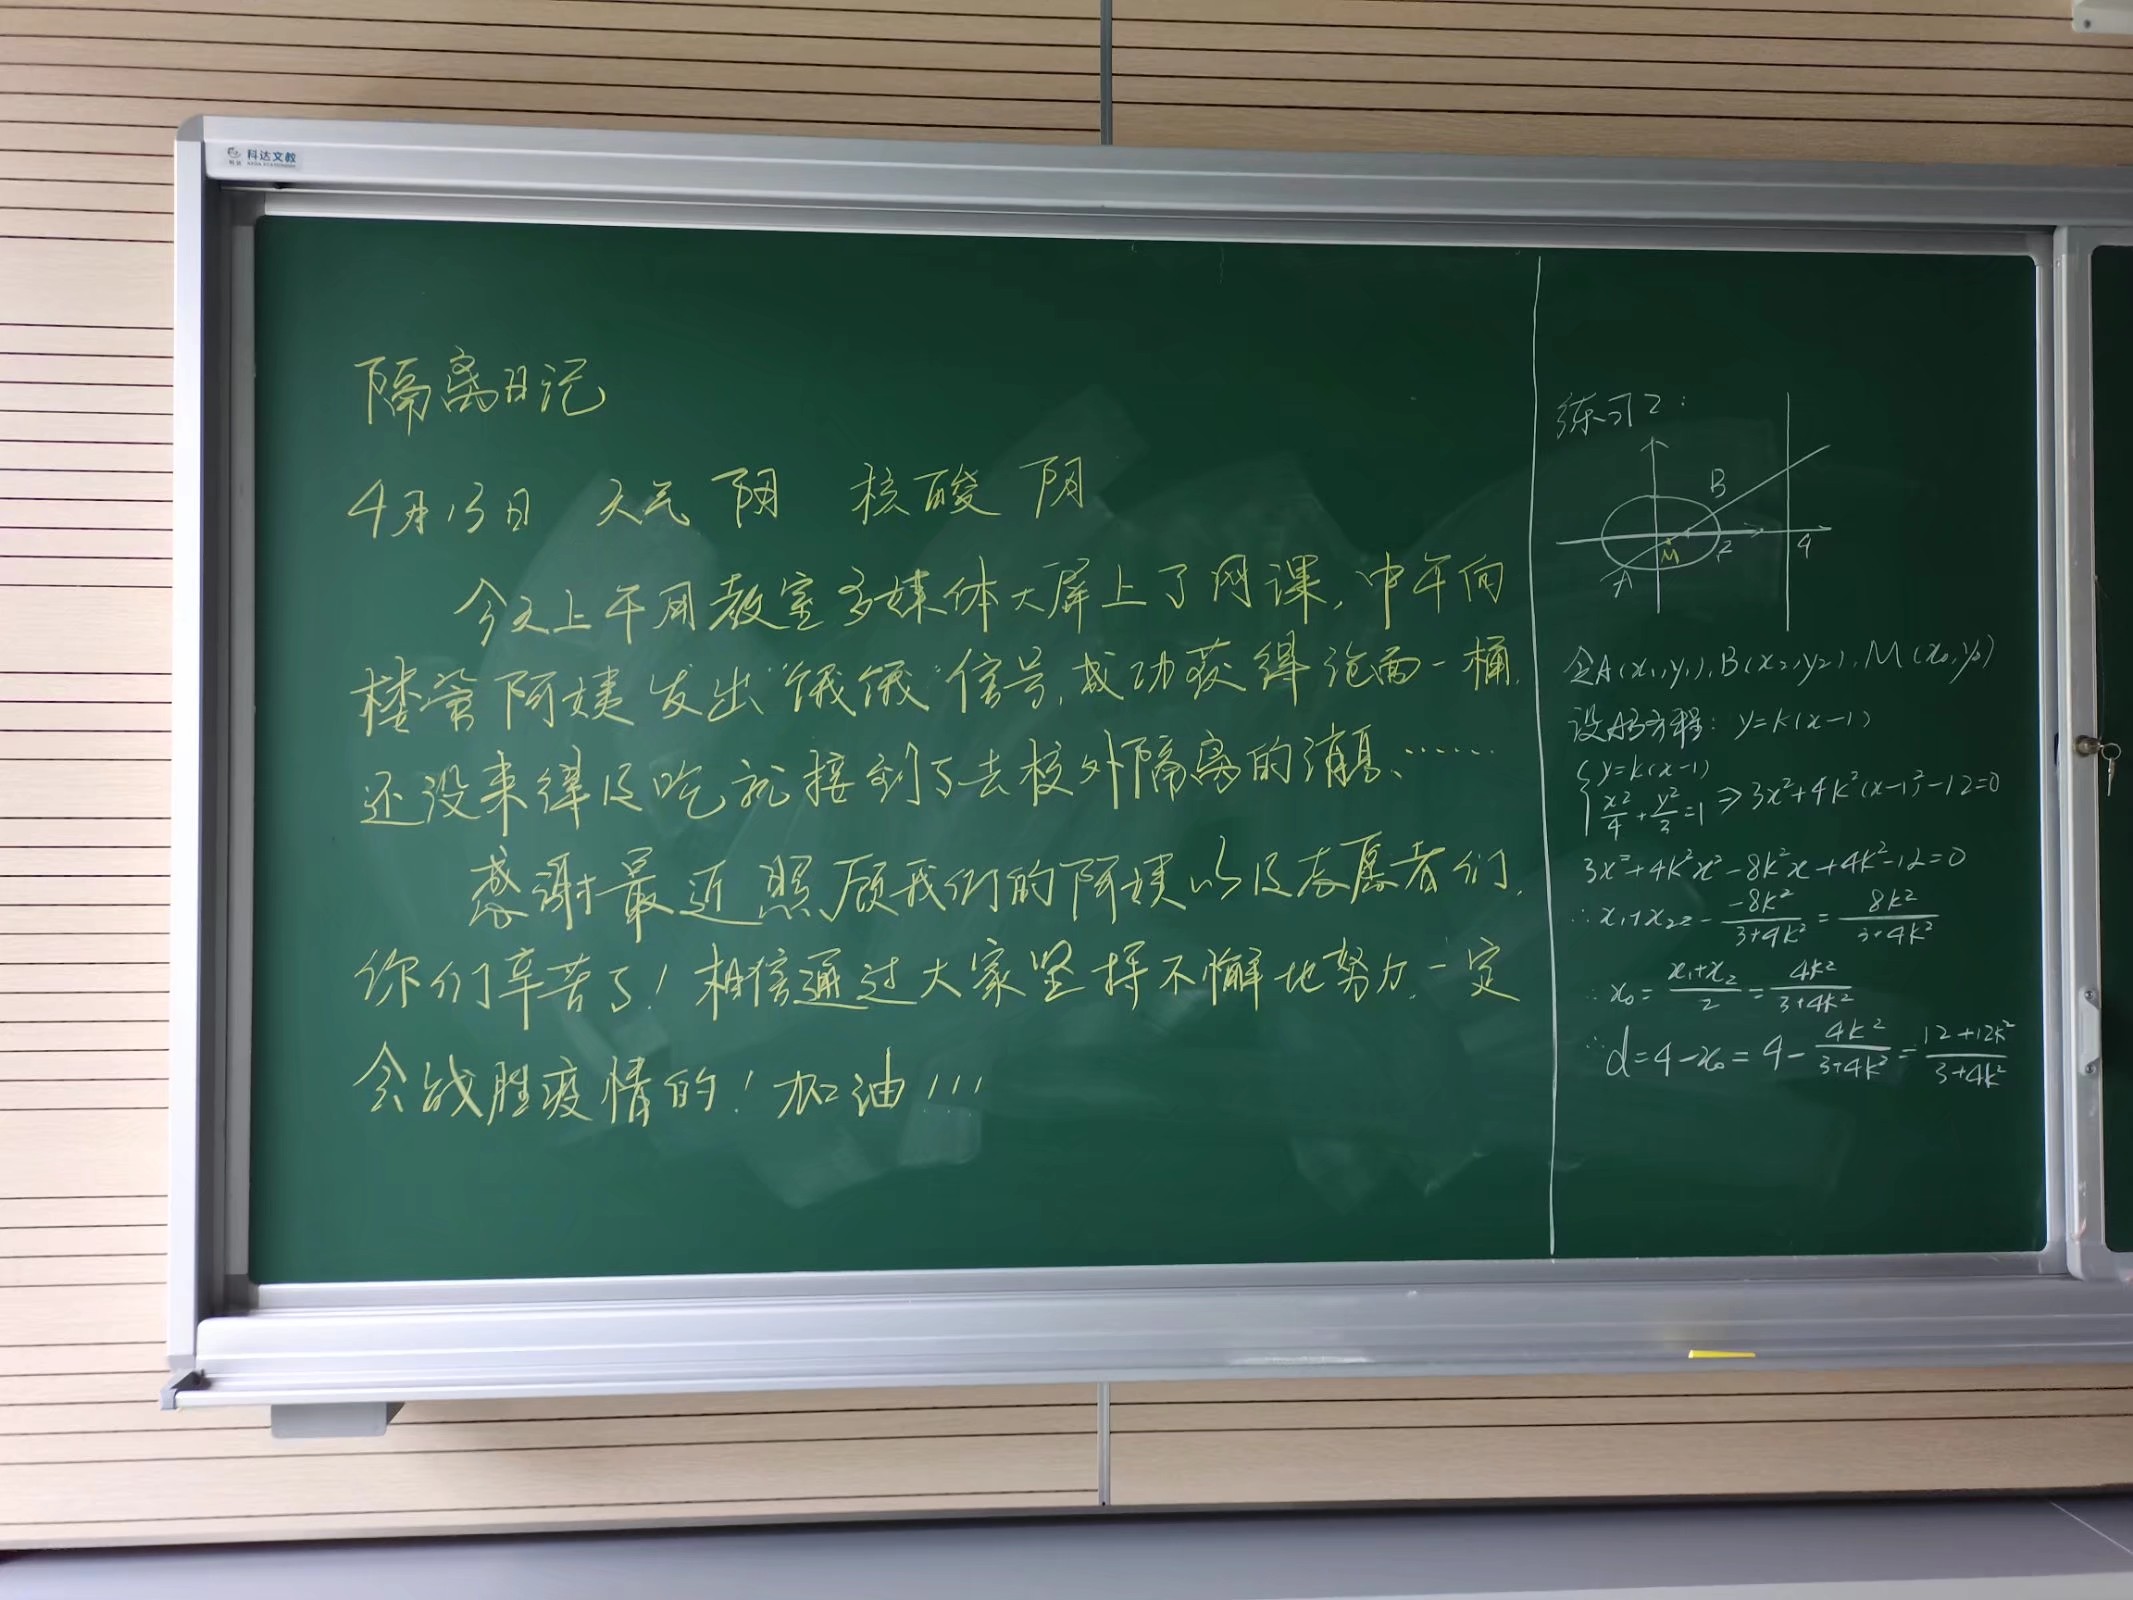 科达文教
隔离日记
4月13日 天气 阴 核酸 阴
今天上午用教室多媒体大屏上了网课,中午向
楼管阿姨发出“饿饿”信号,成功获得泡面一桶,
还没来得及吃就接到了去校外隔离的消息、……
感谢最近照顾我们的阿姨以及志愿者们,
你们辛苦了!相信通过大家坚持不懈地努力,一定
会战胜疫情的!加油!!!
练习2:
B
M 2 4
A
令A(x₁,y₁),B(x₂,y₂),M(x₀,y₀)
设AB方程:y=k(x-1)
{y=k(x-1)
x²/4+y²/3=1 ⇒3x²+4k²(x-1)²-12=0
3x²+4k²x²-8k²x+4k²-12=0
∴x₁+x₂=- -8k²/3+4k² = 8k²/3+4k²
∴x₀= x₁+x₂/2 = 4k²/3+4k²
∴d=4-x₀=4- 4k²/3+4k² = 12+12k²/3+4k²